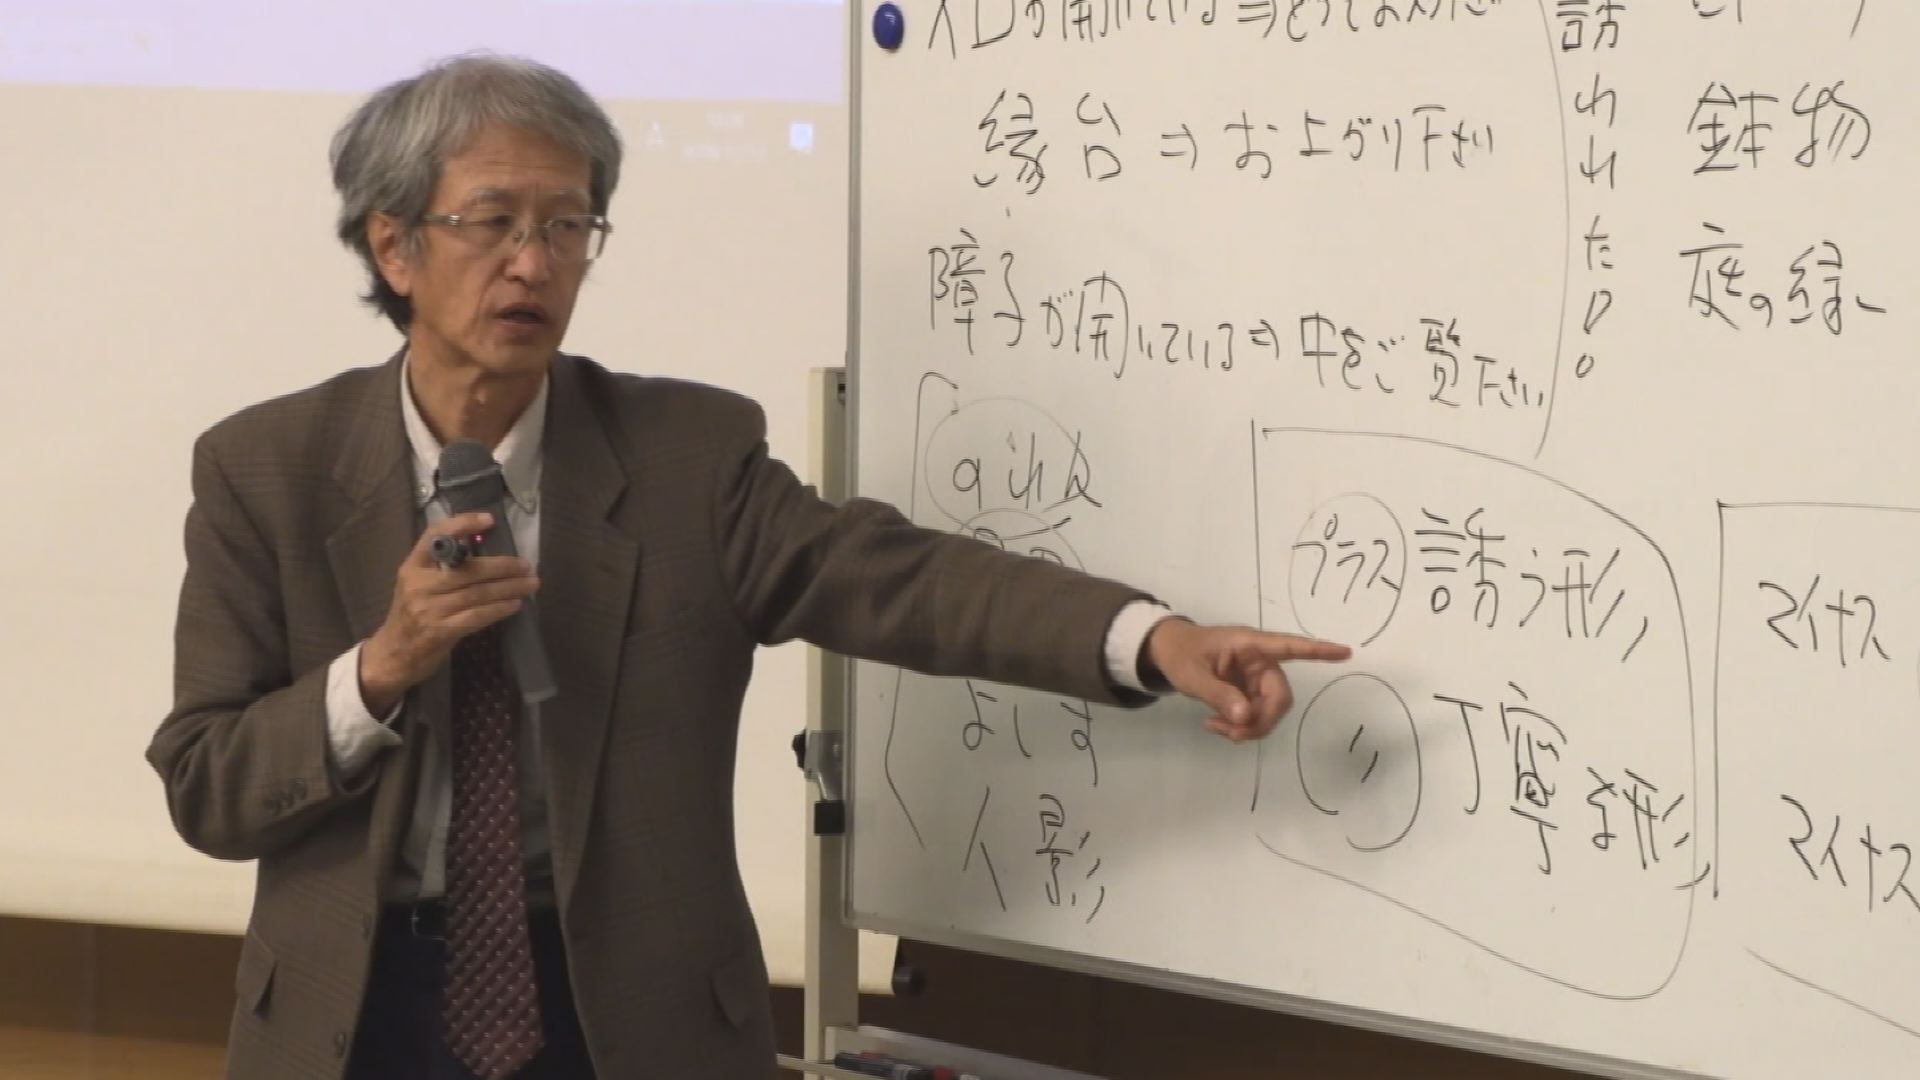 入口が開いている⇒どうぞ
縁台⇒お上がり下さい
障子が開いている⇒中をご覧下さい
のれん
よしず
人影
誘われたり。
鉢物
庭の縁
プラス 誘う形
〃 丁寧な形
マイナス
マイナス